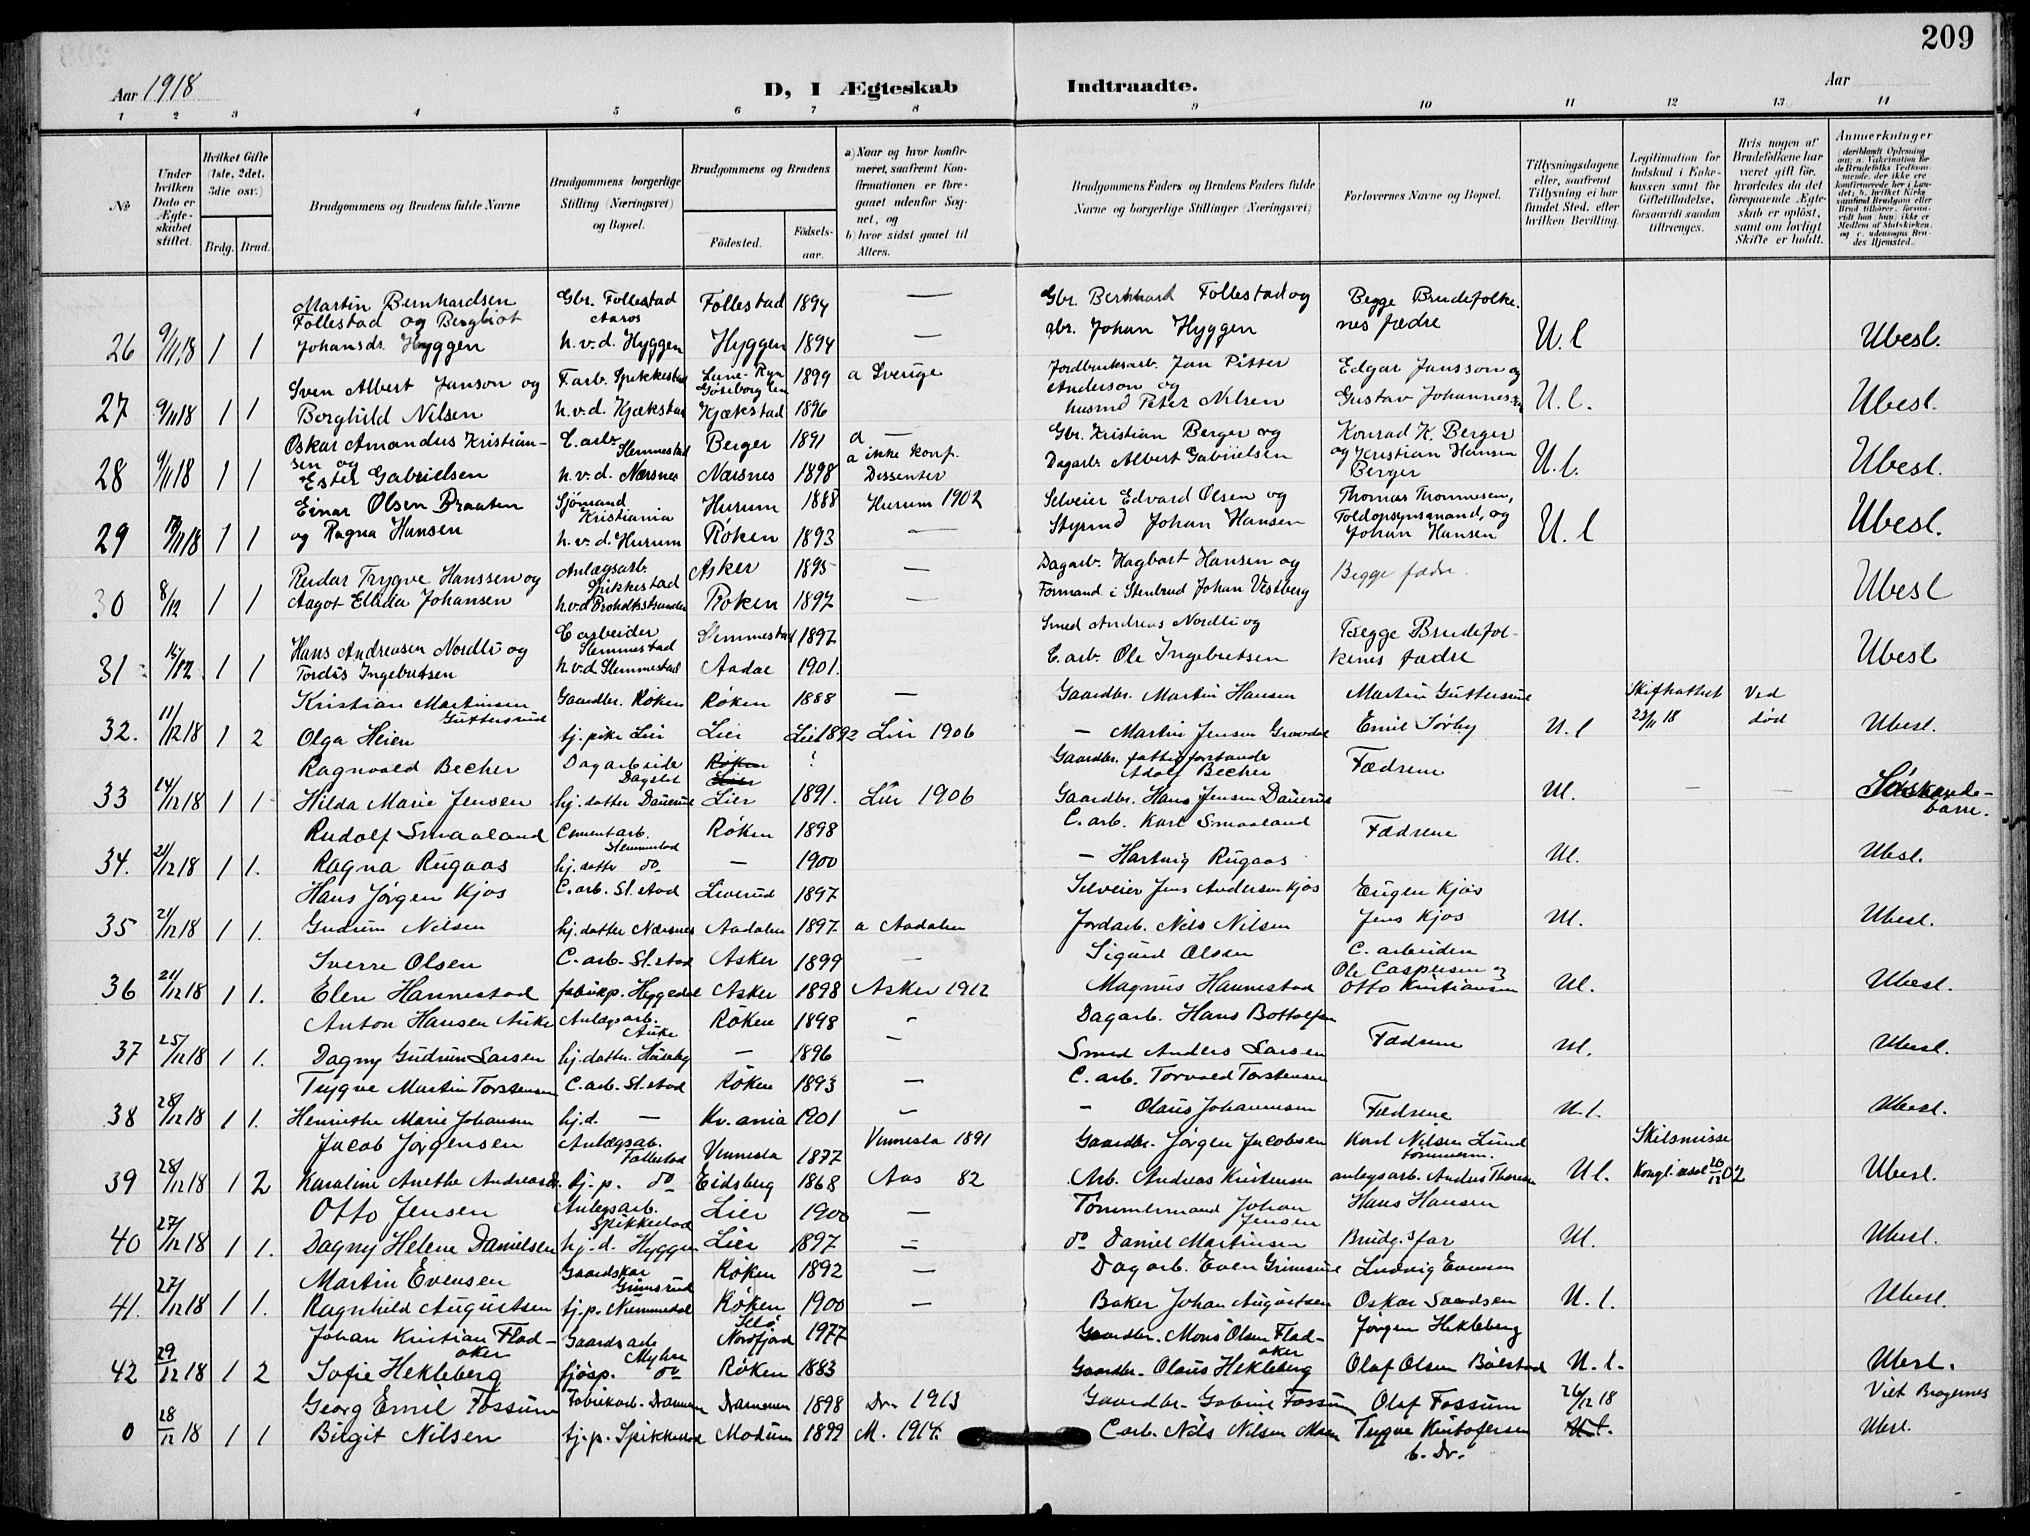 209
Aar 1918
D, I Ægteskab Indtraadte.
Aar
1 2 3 4 5 6 7 8 9 10 11 12 13 14
No
Under hvilken Dato er Ægteskabet stiftet.
Hvilket Gifte (1ste, 2det, 3die osv.)
Brdg. Brud.
Brudgommens og Brudens fulde Navne
Brudgommens borgerlige Stilling (Næringsvei) og Bopæl.
Brudgommens og Brudens
Fødested.
Fødsels-aar.
a) Naar og hvor konfirmeret, saafremt Konfirmationen er foregaaet udenfor Sognet, og
b) hvor sidst gaaet til Alters.
Brudgommens Faders og Brudens Faders fulde Navne og borgerlige Stillinger (Næringsvei)
Forlovernes Navne og Bopæl.
Tillysningsdagene eller, saafremt Tillysning ei har fundet Sted, efter hvilken Bevilling.
Legitimation for Indskud i Enkekassen samt for Giftetilladelse, forsaavidt saadan tiltrænges.
Hvis nogen af Brudefolkene har været gift før, hvorledes da det foregaaende Ægteskab er opløst, samt om lovligt Skifte er holdt.
Anmerkninger
Martin Bernhardsen Gbr. Follestad Follestad 1894 — Gbr. Bernhard Follestad og Begge Brudefolke-
Follestad og Bergliot Aaros nes fædre
26 9/11 18 1 1 Johansdr. Hyggen h.v.d. Hyggen Hyggen 1894 — gbr. Johan Hyggen U. l Ubesl.
Sven Albert Janson og F.arb. Spikkestad Göteborg 1899 a Sverige Jordbruksarb. Jan Petter Anderson og Edgar Jansson og
27 9/11 18 1 1 Borghild Nilsen h.v.d. Kjækstad Kjækstad 1896 husmd Peter Nilsen Gustav Johannes U. l. Ubesl.
Oskar Amandus Kristian- C. arb. Slemmestad Berger 1891 a — Gbr. Kristian Berger og Konrad K. Berger
28 9/11 18 1 1 sen og Ester Gabrielsen h.v.d. Nærsnes Nærsnes 1898 a ikke konf. Dissenter Dagarb. Albert Gabrielsen og Kristian Hansen Berger U. l. Ubesl.
Einar Olsen Braaten Sjømand Kristiania Hurum 1888 Hurum 1902 Selveier Edvard Olsen og Thomas Thommesen,
29 /11 18 1 1 og Ragna Hansen h.v.d. Hurum Røken 1893 — Styrmd Johan Hansen Toldopsynsmand, og Johan Hansen U. l Ubesl.
Reidar Trygve Hanssen og Anlægsarb. Spikkestad Asker 1895 — Dagarb. Hagbart Hansen og Begge fædre.
30 8/12 1 1 Aagot Ellida Johansen h.v.d. Røken 1897 — Formand i Stenbrud Johan Vestberg Ubesl
Hans Andreasen Nordli og C arbeider Slemmestad Slemmestad 1897 Smed Andreas Nordli og Begge Brudefol-
31 15/12 1 1 Tordis Ingebretsen h.v.d. Slemmestad Aadal 1901. C. arb. Ole Ingebretsen kenes fædre Ubesl
Kristian Martinsen Guttersrud Gaardbr. Røken Røken 1888 — Gaardbr. Martin Hansen Martin Guttersrud Skifteattest Ved
32. 11/12 18 1 2 Olga Heien tj. pike Lier Lier 1892 Lier 1906 — Martin Jensen Emil Sørby U. l 23/11 18 død Ubesl.
Ragnvald Becher Dagarbeide Dagslet Røken ? Gaardbr. fattigforstander Adolf Becher Fædrene
33 14/12 18 1 1 Hilda Marie Jensen hj. datter Lier 1891. Lier 1906 Gaardbr. Hans Jensen Ul. — — Søskende-barn.
Rudolf Smaaland Cementarb. Slemmestad Røken 1898 C. arb. Karl Smaaland Fædrene
34. 21/12 18 1 1. Ragna Rugaas hj. datter do — 1900 — Hartvig Rugaas Ul. Ubesl.
Hans Jørgen Kjos C. arb. Sl. stad Liverud 1897 Selveier Jens Andersen Kjos Eugen Kjos
35 21/12 18 1 1. Gudrun Nilsen hj. datter Nærsnes Aadalen 1897. a Aadalen Jordarb. Nils Nilsen Jens Kjos Ul. Ubesl.
Sverre Olsen C. arb. Sl. stad Asker 1899 — Sigurd Olsen C. arbeiden
36 21/12 18 1 1. Elen Hannestad fabrikp. Heggedal Asker 1898 Asker 1912 Magnus Hannestad Ole Caspersen og Otto Kristiansen Ul. Ubesl.
Anton Hansen Auke Anlægsarb. Auke Røken 1898 - Dagarb. Hans Bottolfsen Fædrene
37 25/12 18 1 1. Dagny Gudrun Larsen hj. datter. — 1896 — Smed Anders Larsen Ul. Ubesl.
Trygve Martin Torstensen C. arb. Sl. stad Røken 1893 — C. arb. Torvald Torstensen
38 28/12 18 1 1. Henriette Marie Johansen hj. d. — Kr.ania 1901 — - Olaus Johannesen Fædrene U. l. Ubesl.
Jacob Jørgensen Anlægsab. Follestad Vennesla 1877 Vennesla 1891 Gaardbr. Jørgen Jacobsen Karl Nilsen Lund Skilsmisse
39 28/12 18 1 2 Karoline Anethe Andreasd. tj. p. do Eidsberg 1868 Aas 82 Arb. Andreas Kristensen anlegsarb. Anders U l. Kongl. 20/12 02 Ubesl.
Otto Jensen Anlegsarb. Spikkestad Lier 1900 — Tømmermand Johan Jensen Hans Hansen
40 27/12 18 1 1. Dagny Helene Danielsen hj. d. Hyggen Lier 1897 — do Daniel Martinsen Brudg. s far Ul. Ubesl.
Martin Evensen Gaardskar Grimsrud Røken 1892 — Dagarb. Even Grimsrud Ludvig Evensen
41. 27/12 18 1 1. Ragnhild Augustsen tj. p. Røken 1900 — Baker Johan Augustsen Oskar U. l. Ubesl.
Johan Kristian Flad-oker Gaardsarb. Myhre Nordfjord 1977 Gaardbr. Mons Olsen Flad-oker Jørgen Hekleberg
42 29/12 18 1 2 Sofie Hekleberg do Røken 1883 Gaardbr. Olaus Hekleberg Olaf Olsen Bølstad U. l. Ubesl.
Georg Emil Fossum Fabrikarb. Drammen Drammen 1898 Dr. 1913 Gaardbr. Fossum Olaf Fossum 26/12 18 Viet Bragernes
0 28/12 18 1 1 Birgit Nilsen tj. p. Spikkestad Modum 1899 M. 1914. C arb. Nils Nilsen Trygve Kristofersen b. Dr. U l. Ubesl.